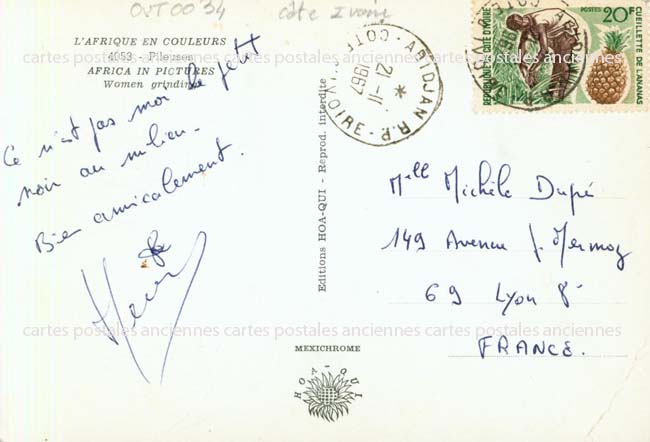 OUT0034 côte Ivoire
L'AFRIQUE EN COULEURS
4053 - Pileuses
AFRICA IN PICTURES
Women grinding
Ce n'est pas moi le petit
noir au milieu -
Bien amicalement.
Editions HOA-QUI - Reprod. interdite
ABIDJAN R.P.
21-11
1967
COTE D'IVOIRE
REPUBLIQUE DE COTE D'IVOIRE
POSTES
20F
CUEILLETTE DE L'ANANAS
Mell Michèle Dupé
149 Avenue J. Mermoz
69 Lyon 8e
FRANCE.
cartes postales anciennes cartes postales anciennes cartes postales anciennes
MEXICHROME
HOA-QUI